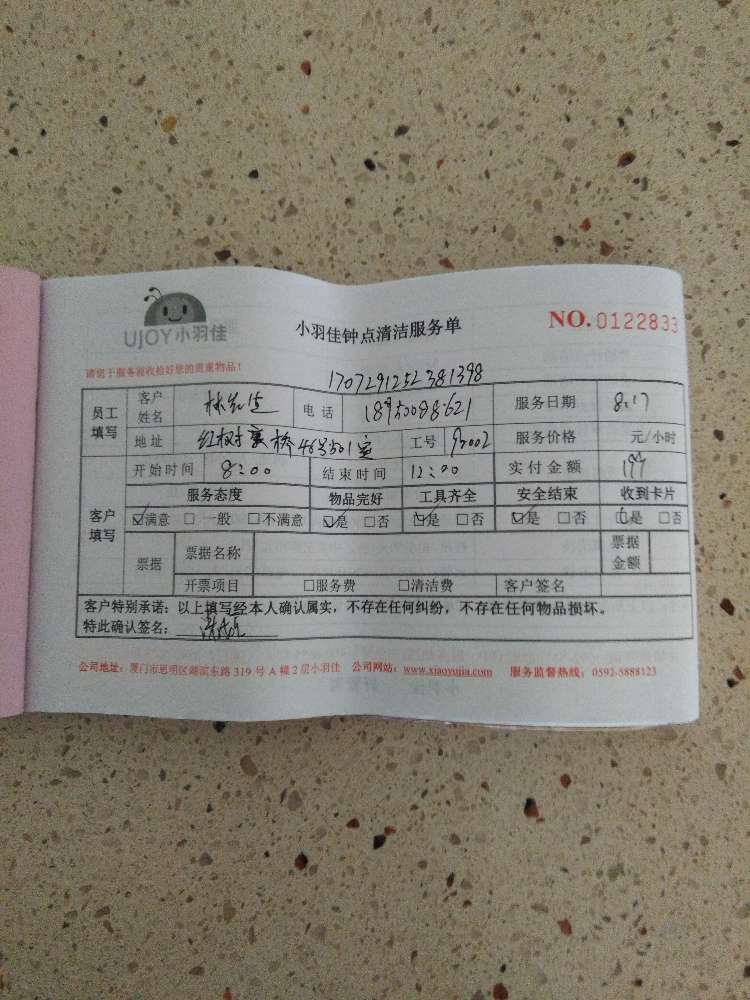 UJOY小羽佳
小羽佳钟点清洁服务单
NO. 0122833
请您于服务前收捡好您的贵重物品!
170729125238 1398
员工填写 客户姓名 林 电话 18950088621 服务日期 8.17
地址 红树 46号501室 工号 95002 服务价格 元/小时
客户填写 开始时间 8:00 结束时间 12:00 实付金额
服务态度 物品完好 工具齐全 安全结束 收到卡片
☑满意 □一般 □不满意 ☑是 □否 ☑是 □否 ☑是 □否 ☑是 □否
票据 票据名称 票据金额
开票项目 □服务费 □清洁费 客户签名
客户特别承诺:以上填写经本人确认属实,不存在任何纠纷,不存在任何物品损坏。
特此确认签名:
公司地址:厦门市思明区湖滨东路 319 号 A 幢 2 层小羽佳 公司网站:www.xiaoyujia.com 服务监督热线:0592-5888123